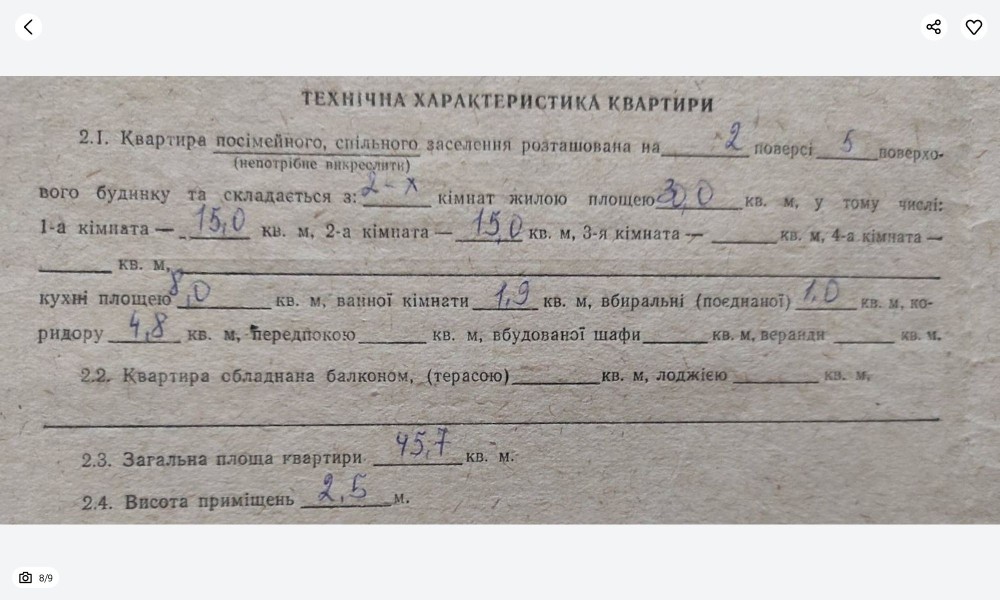 ТЕХНІЧНА ХАРАКТЕРИСТИКА КВАРТИРИ
2.1. Квартира посімейного, спільного заселення розташована на 2 поверсі 5 поверхо-
(непотрібне викреслити)
вого будинку та складається з: 2-х кімнат жилою площею 30,0 кв. м, у тому числі:
1-а кімната — 15,0 кв. м, 2-а кімната — 15,0 кв. м, 3-я кімната — кв. м, 4-а кімната —
кв. м,
кухні площею 8,0 кв. м, ванної кімнати 1,9 кв. м, вбиральні (поєднаної) 1,0 кв. м, ко-
ридору 4,8 кв. м, передпокою кв. м, вбудованої шафи кв. м, веранди кв. м.
2.2. Квартира обладнана балконом, (терасою) кв. м, лоджією кв. м,
2.3. Загальна площа квартири 45,7 кв. м.
2.4. Висота приміщень 2,5 м.
8/9